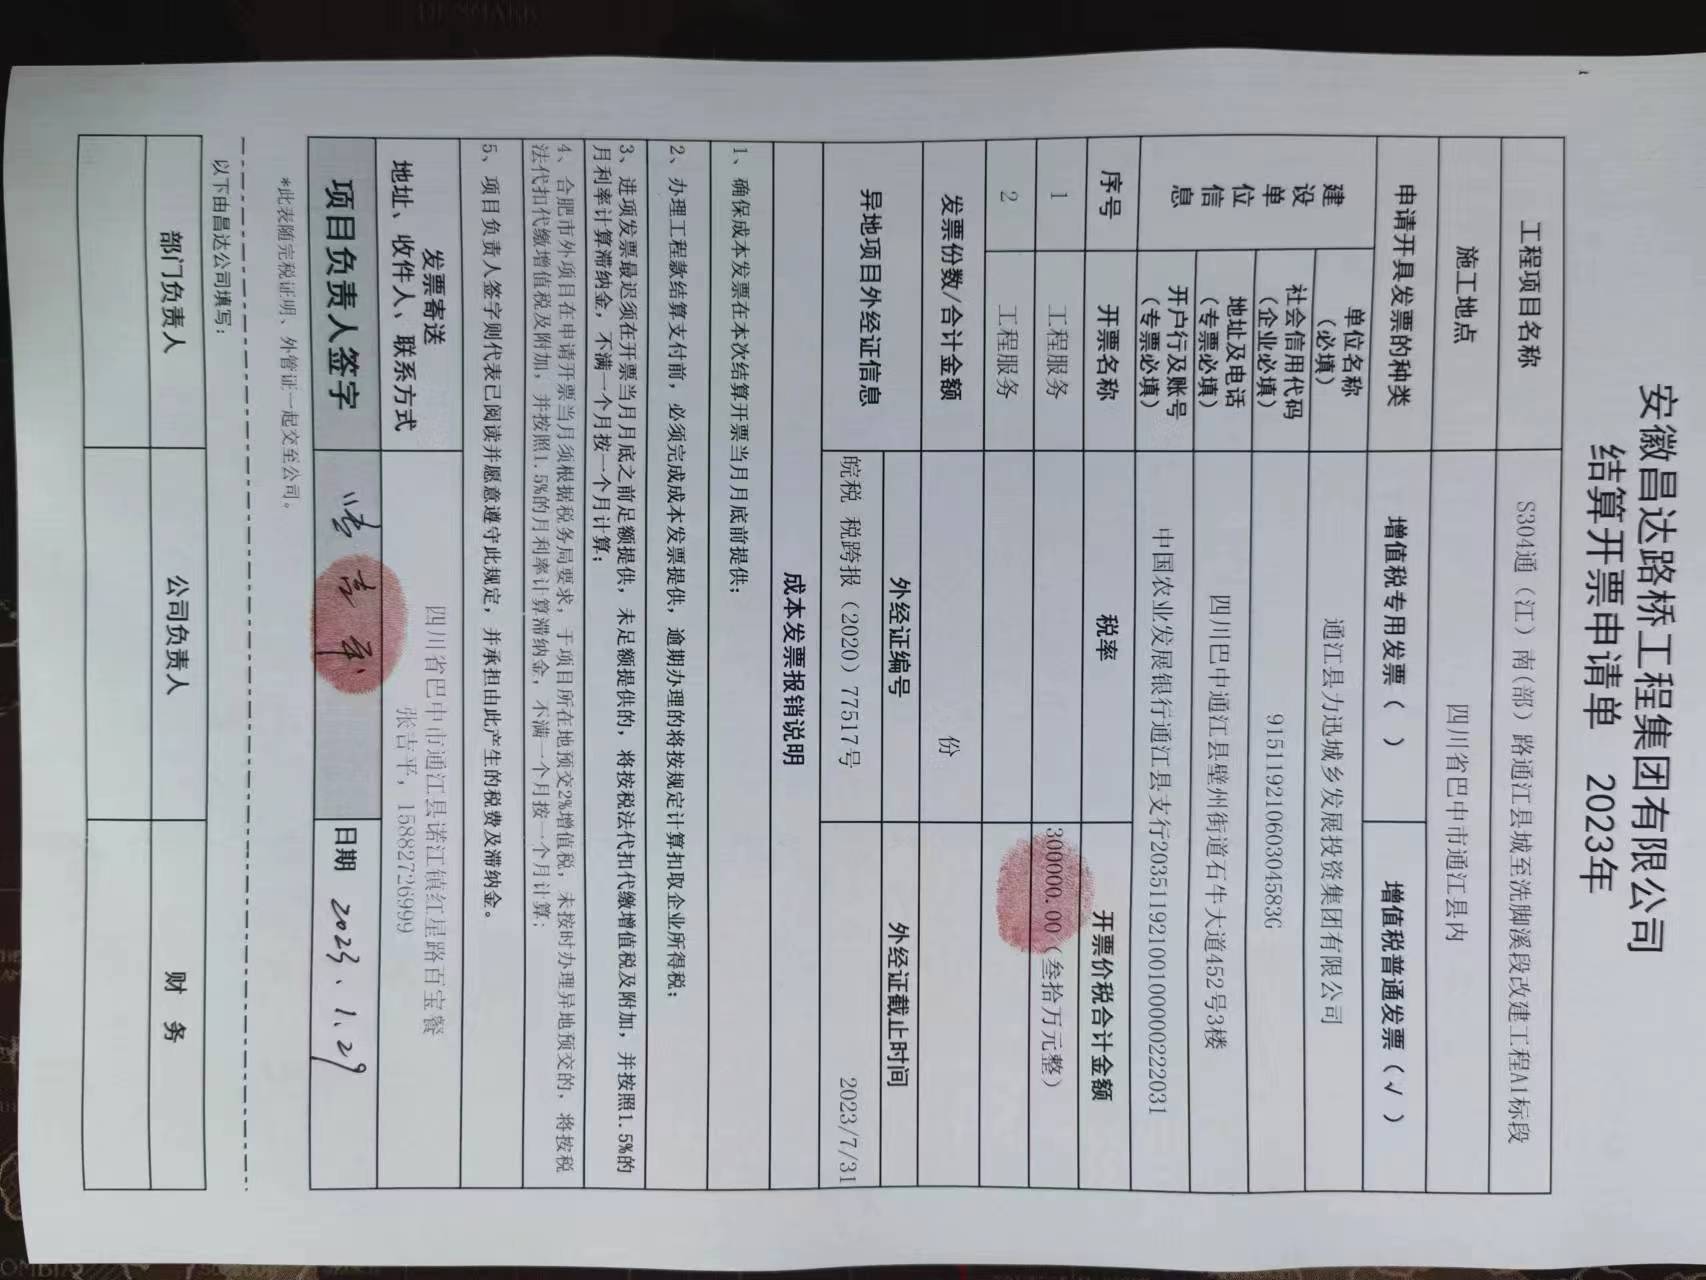 安徽昌达路桥工程集团有限公司
结算开票申请单 2023年
工程项目名称 S304通（江）南(部）路通江县城至洗脚溪段改建工程A1标段
施工地点 四川省巴中市通江县内
申请开具发票的种类 增值税专用发票（ ） 增值税普通发票（√）
建设单位信息
单位名称（必填） 通江县力迅城乡发展投资集团有限公司
社会信用代码（企业必填） 91511921060304583G
地址及电话（专票必填） 四川巴中通江县壁州街道石牛大道452号3楼
开户行及账号（专票必填） 中国农业发展银行通江县支行20351192100100000222031
序号 开票名称 税率 开票价税合计金额
1 工程服务 300000.00（叁拾万元整）
2 工程服务
发票份数/合计金额 份
异地项目外经证信息 外经证编号 外经证截止时间
皖税 税跨报（2020）77517号 2023/7/31
成本发票报销说明
1、确保成本发票在本次结算开票当月月底前提供；
2、办理工程款结算支付前，必须完成成本发票提供，逾期办理的将按规定计算扣取企业所得税；
3、进项发票最迟须在开票当月月底之前足额提供，未足额提供的，将按税法代扣代缴增值税及附加，并按照1.5%的
月利率计算滞纳金，不满一个月按一个月计算；
4、合肥市外项目在申请开票当月须根据税务局要求，于项目所在地预交2%增值税，未按时办理异地预交的，将按税
法代扣代缴增值税及附加，并按照1.5%的月利率计算滞纳金，不满一个月按一个月计算；
5、项目负责人签字则代表已阅读并愿意遵守此规定，并承担由此产生的税费及滞纳金。
发票寄送 四川省巴中市通江县诺江镇红星路百宝餐
地址、收件人、联系方式 张吉平，15882726999
项目负责人签字 张吉平 日期 2023.1.29
*此表随完税证明、外管证一起交至公司。
以下由昌达公司填写：
部门负责人 公司负责人 财 务